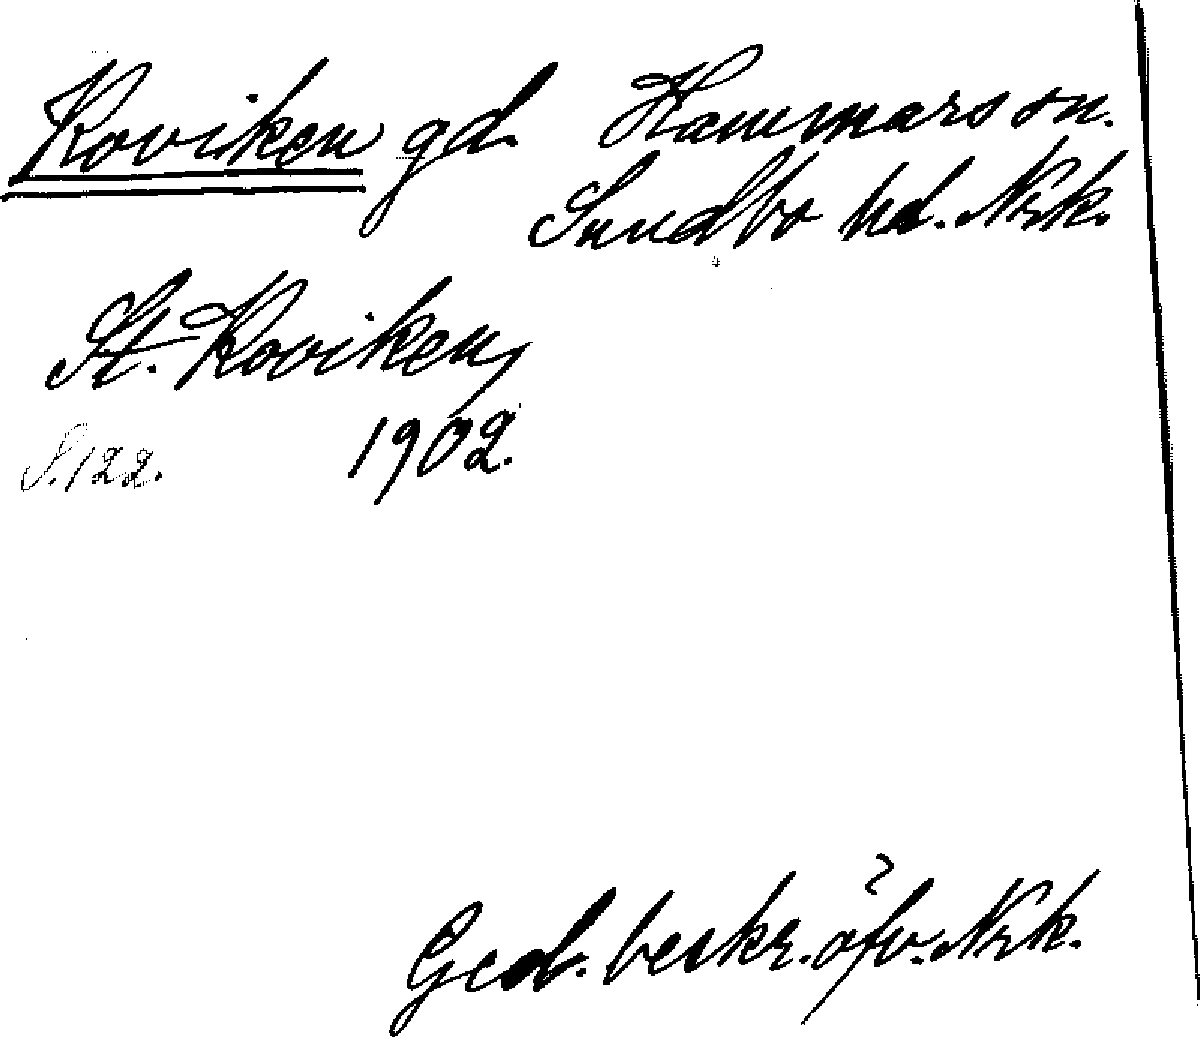 Koviken gd. Hammars sn.
Sundbo hd. Nrk.
St. Koviken,
S. 122. 1902.
Geol. beskr. öfv. Nrk.